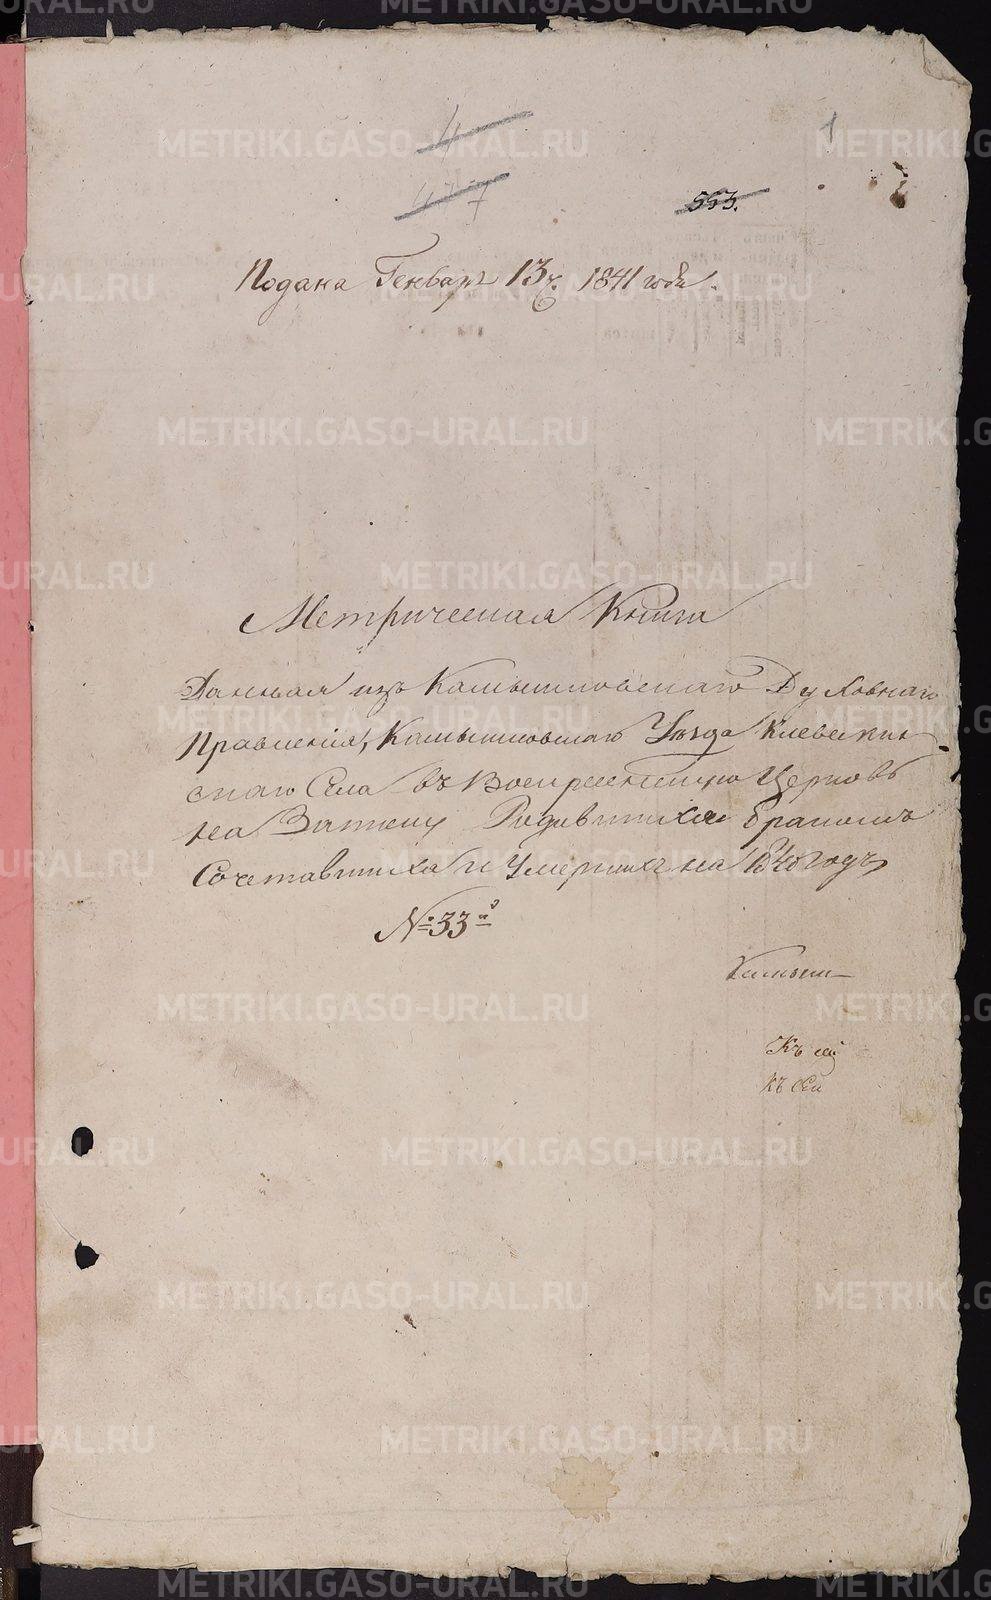 4
1
447
553.
Подана Генваря 13 ч. 1841 года.
Метрическая Книга
Данная изъ Камышловскаго Духовнаго
Правленія, Камышловскаго Уѣзда Клевакин
скаго Села въ Воскресенскую Церковь
на Записку Родившихся бракомъ
Сочетавшихся и Умершихъ на 1840 годъ,
№ 33й
Камыш
Къ сей
Къ сей
METRIKI.GASO-URAL.RU